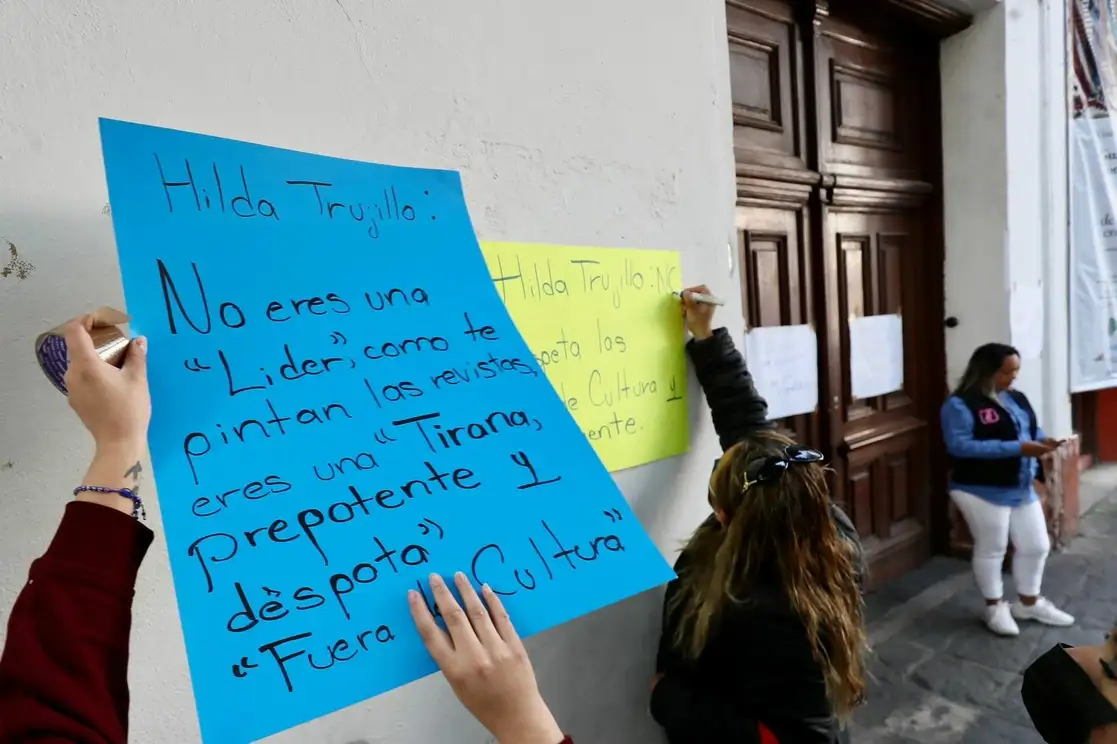 Hilda Trujillo:
No eres una
"Lider", como te
pintan las revistas,
eres una "Tirana,
prepotente y
dèspota"
"Fuera Cultura"
Hilda Trujillo: NO
las
de Cultura y